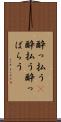 酔っ払う
酔払う酔っ
ぱらう